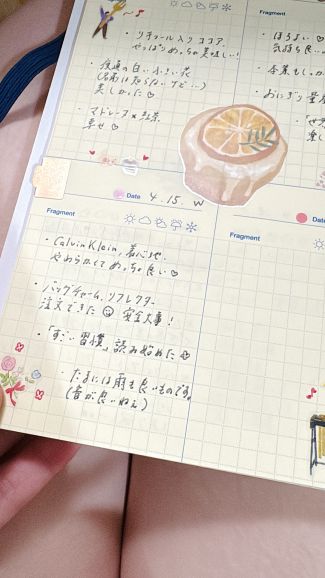 Fragment
・リキュール入りココア、
やっぱりめっちゃ美味しい!
(名前は知らないけど…)
美しかった♡
・マドレーヌ×紅茶
幸せ♡
Fragment
気持ち良い
・おにぎり
Date 4.15. W
Fragment
・Calvin Klein、着心地
やわらかくてめっちゃ良い♡
・バッグチャーム、リフレクター
注文できた 安全大事!
・「すごい習慣」読み始めた
・たまには雨も良いものです。
(音が良いねぇ)
Date
Fragment